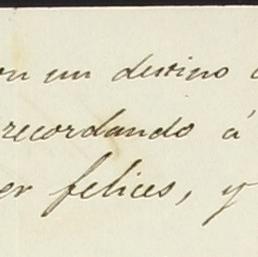 on un destino
recordando á
er felices, y